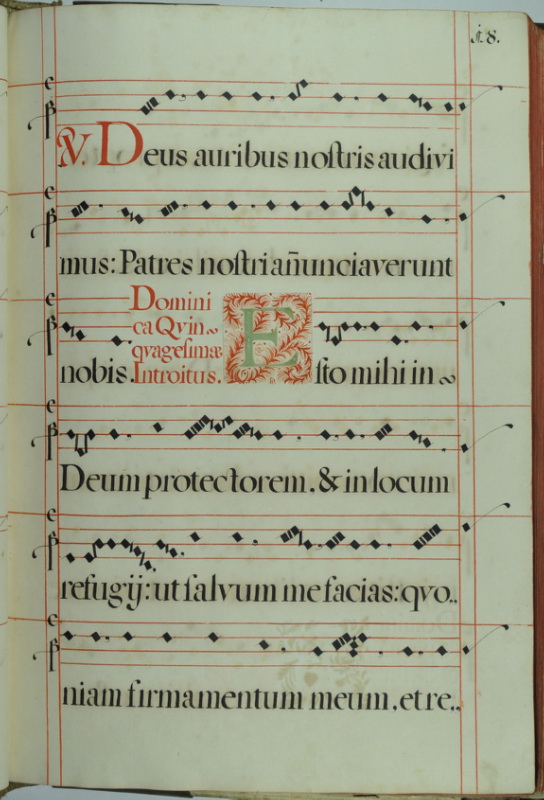 fl. 8.
℣. Deus auribus nostris audivi
mus: Patres nostri añunciaverunt
nobis.
Domini
ca Qvin~
qvagesimæ
Introitus.
Esto mihi in ~
Deum protectorem. & in locum
refugij: ut salvum me facias: qvo..
niam firmamentum meum. et re..